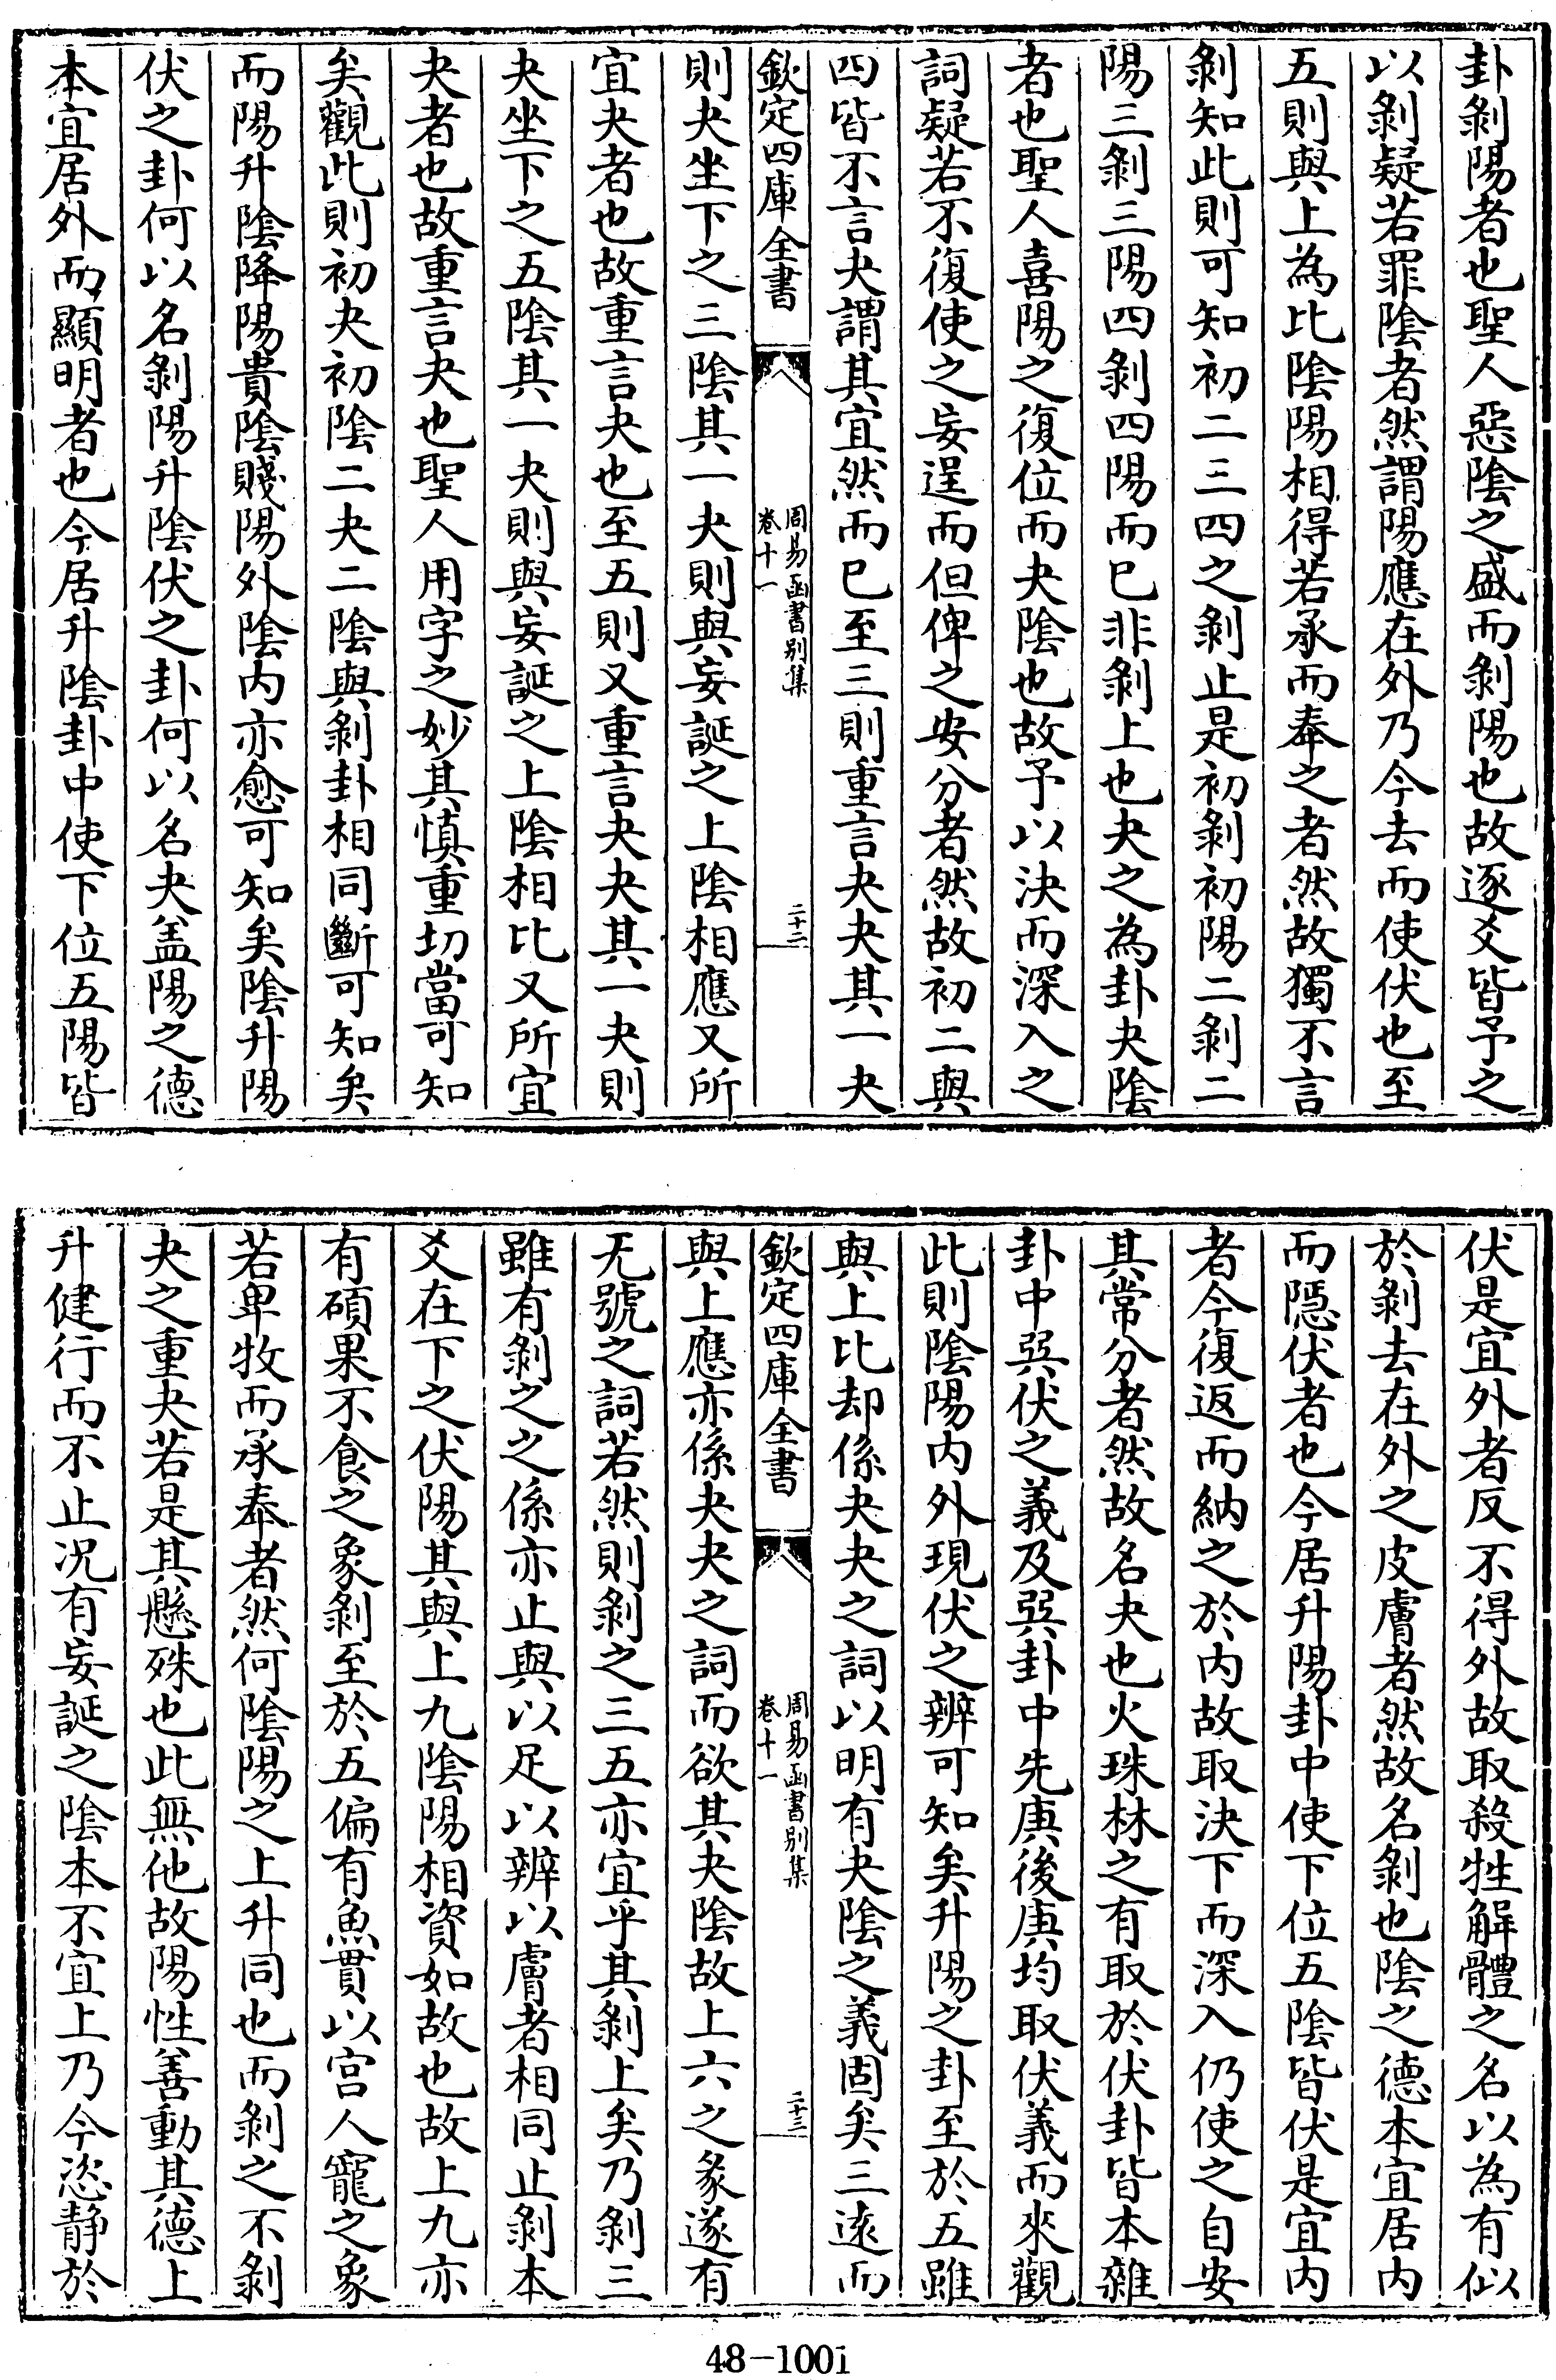 卦剝陽者也聖人惡陰之盛而剝陽也故逐爻皆予之
以剝疑若罪陰者然謂陽應在外乃今去而使伏也至
五則與上為比陰陽相得若承而奉之者然故獨不言
剝知此則可知初二三四之剝止是初剝初陽二剝二
陽三剝三陽四剝四陽而已非剝上也夬之為卦夬陰
者也聖人喜陽之復位而夬陰也故予以決而深入之
詞疑若不復使之妄逞而但俾之安分者然故初二與
四皆不言夬謂其宜然而已至三則重言夬夬其一夬
欽定四庫全書
周易函書别集
卷十一
二十二
則夬坐下之三陰其一夬則與妄誕之上陰相應又所
宜夬者也故重言夬也至五則又重言夬夬其一夬則
夬坐下之五陰其一夬則與妄誕之上陰相比又所宜
夬者也故重言夬也聖人用字之妙其慎重切當可知
矣觀此則初夬初陰二夬二陰與剝卦相同斷可知矣
而陽升陰降陽貴陰賤陽外陰内亦愈可知矣陰升陽
伏之卦何以名剝陽升陰伏之卦何以名夬盖陽之德
本宜居外而顯明者也今居升陰卦中使下位五陽皆
伏是宜外者反不得外故取殺牲解體之名以為有似
於剝去在外之皮膚者然故名剝也陰之德本宜居内
而隱伏者也今居升陽卦中使下位五陰皆伏是宜内
者今復返而納之於内故取決下而深入仍使之自安
其常分者然故名夬也火珠林之有取於伏卦皆本雜
卦中巽伏之義及巽卦中先庚後庚均取伏義而來觀
此則陰陽内外現伏之辨可知矣升陽之卦至於五雖
與上比却係夬夬之詞以明有夬陰之義固矣三逺而
欽定四庫全書
周易函書别集
卷十一
二十三
與上應亦係夬夬之詞而欲其夬陰故上六之彖遂有
无號之詞若然則剝之三五亦宜乎其剝上矣乃剝三
雖有剝之之係亦止與以足以辨以膚者相同止剝本
爻在下之伏陽其與上九陰陽相資如故也故上九亦
有碩果不食之象剝至於五偏有魚貫以宫人寵之象
若卑牧而承奉者然何陰陽之上升同也而剝之不剝
夬之重夬若是其懸殊也此無他故陽性善動其德上
升健行而不止况有妄誕之陰本不宜上乃今恣静於
48-1001